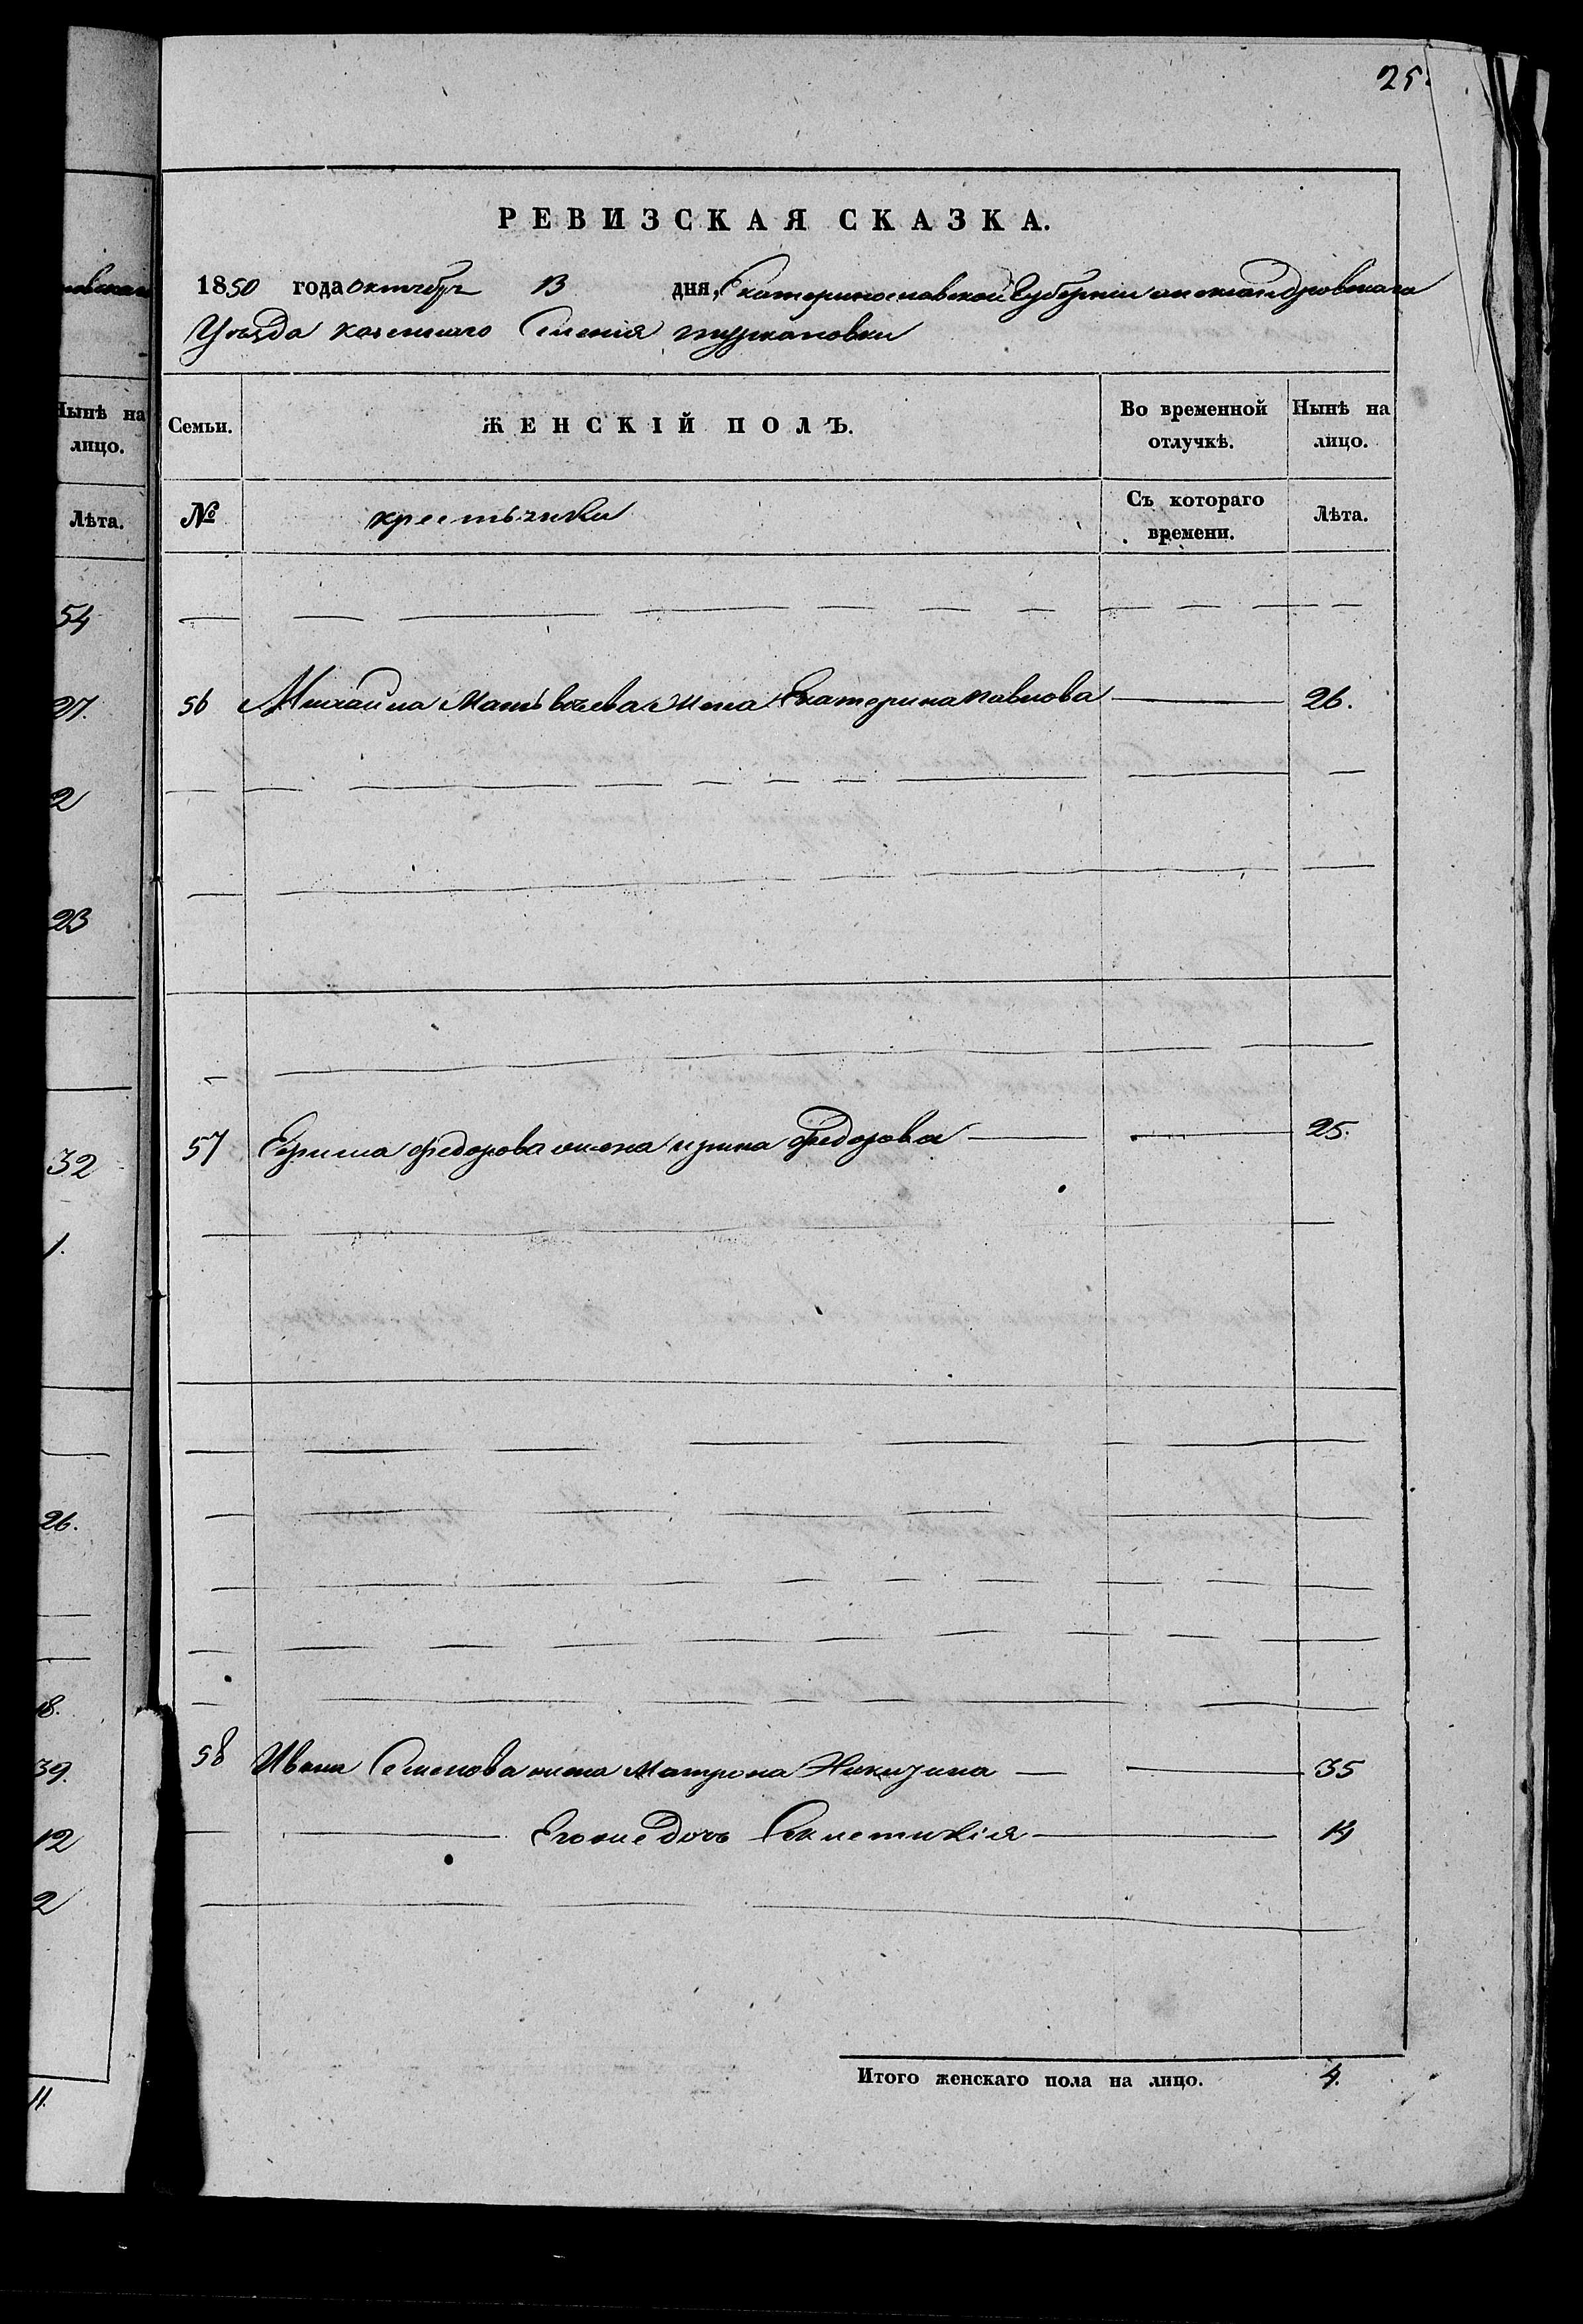 25.
РЕВИЗСКАЯ СКАЗКА.
1850 года октября 13 дня, Екатеринославской Губернии александровскаго
Уѣзда казеннаго Селения туркановки
Нынѣ на лицо.
Семьи. ЖЕНСКІЙ ПОЛЪ. Во временной отлучкѣ. Нынѣ на лицо.
Лѣта.
№ крестьянки Съ котораго времени. Лѣта.
54
27. 56 Михайла Матвѣева жена Екатерина павлова 26.
2
23
32 57 Ефима федорова жена ирина федорова 25.
1.
26.
18.
39. 58 Ивана Семенова жена Матрона Никизина 35
12 Его же дочь 14
2
Итого женскаго пола на лицо. 4.
11.